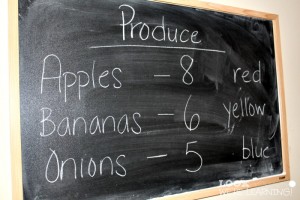 Produce
Apples – 8 red
Bananas – 6 yellow
Onions – 5 blue